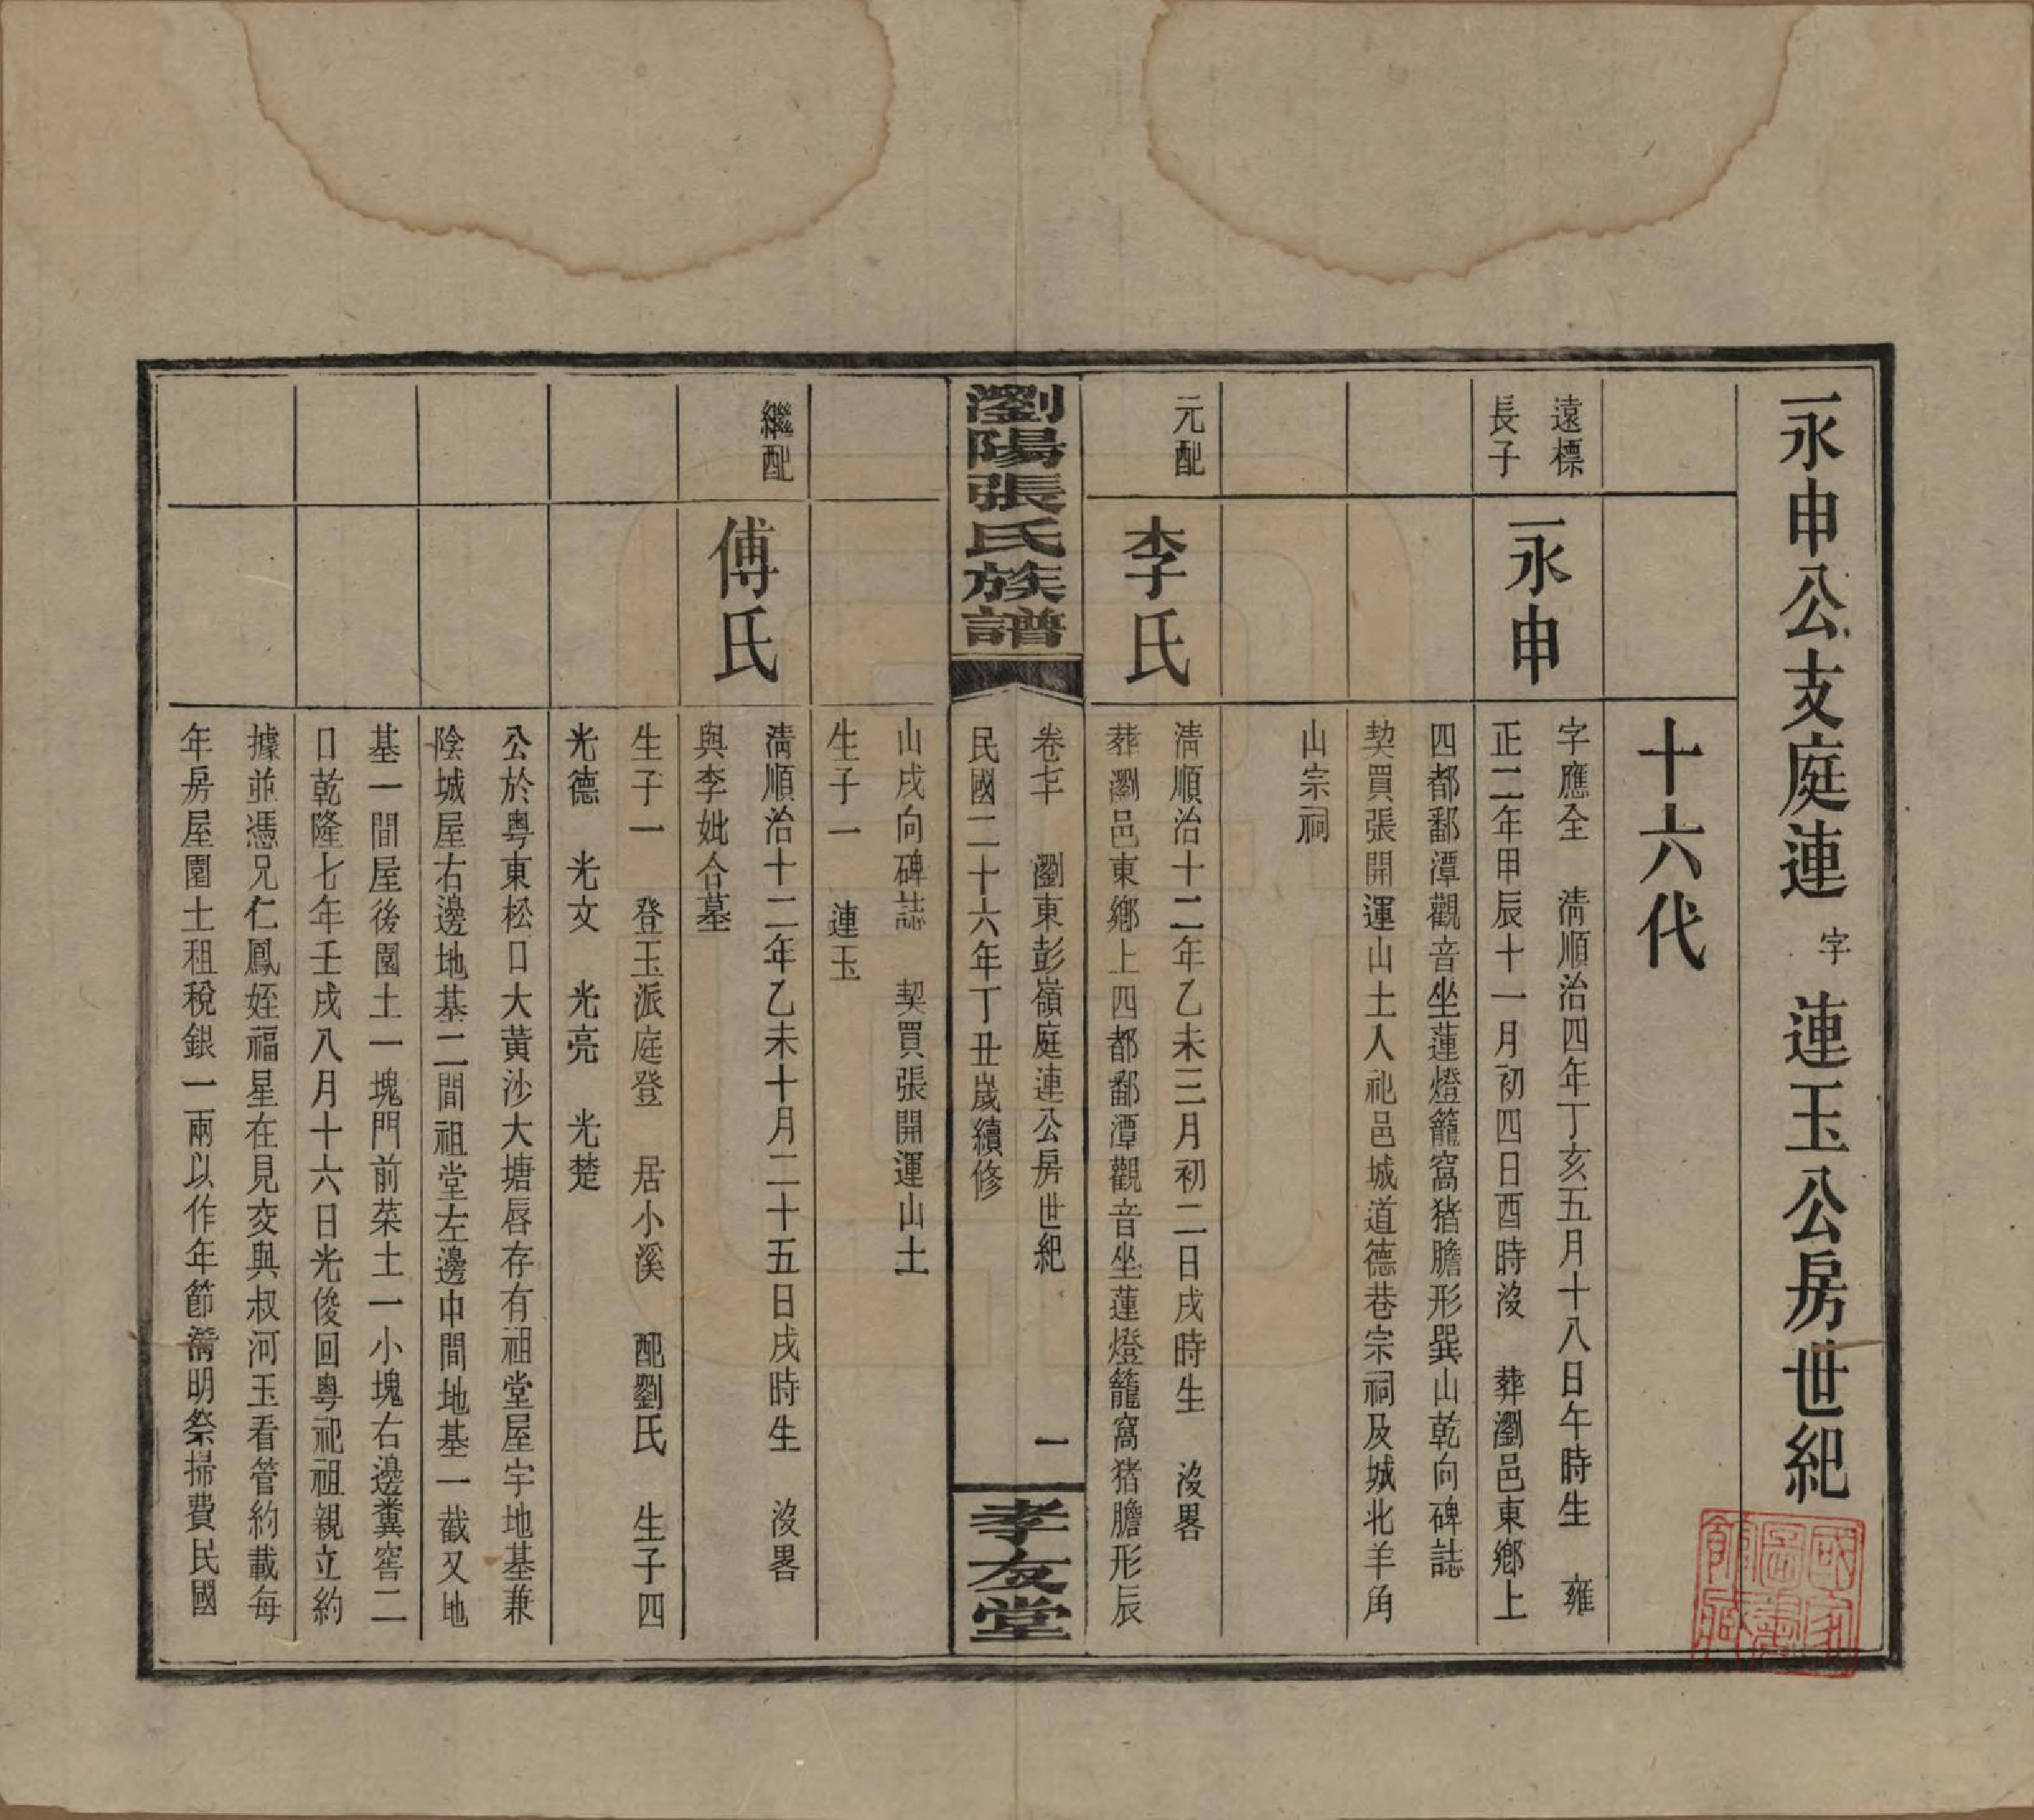 永申公支庭連字連玉公房世紀
十六代
遠標
長子
永申
字應全　清順治四年丁亥五月十八日午時生　雍
正二年甲辰十一月初四日酉時沒　葬瀏邑東鄉上
四都鄱潭觀音坐蓮燈籠窩猪膽形巽山乾向碑誌
契買張開運山土入祀邑城道德巷宗祠及城北羊角
山宗祠
元配
李氏
清順治十二年乙未三月初二日戌時生　沒畧
葬瀏邑東鄉上四都鄱潭觀音坐蓮燈籠窩猪膽形辰
瀏陽張氏族譜
卷七　瀏東彭嶺庭連公房世紀　一
民國二十六年丁丑歲續修
孝友堂
山戌向碑誌　契買張開運山土
生子一　連玉
繼配
傅氏
清順治十二年乙未十月二十五日戌時生　沒畧
與李妣合墓
生子一　登玉派庭登　居小溪　配劉氏　生子四
光德　光文　光亮　光楚
公於粵東松口大黃沙大塘唇存有祖堂屋宇地基兼
陰城屋右邊地基二間祖堂左邊中間地基一截又地
基一間屋後園土一塊門前菜土一小塊右邊糞窖二
口乾隆七年壬戌八月十六日光俊回粵祀祖親立約
據並憑兄仁鳳姪福星在見交與叔河玉看管約載每
年房屋園土租稅銀一兩以作年節清明祭掃費民國